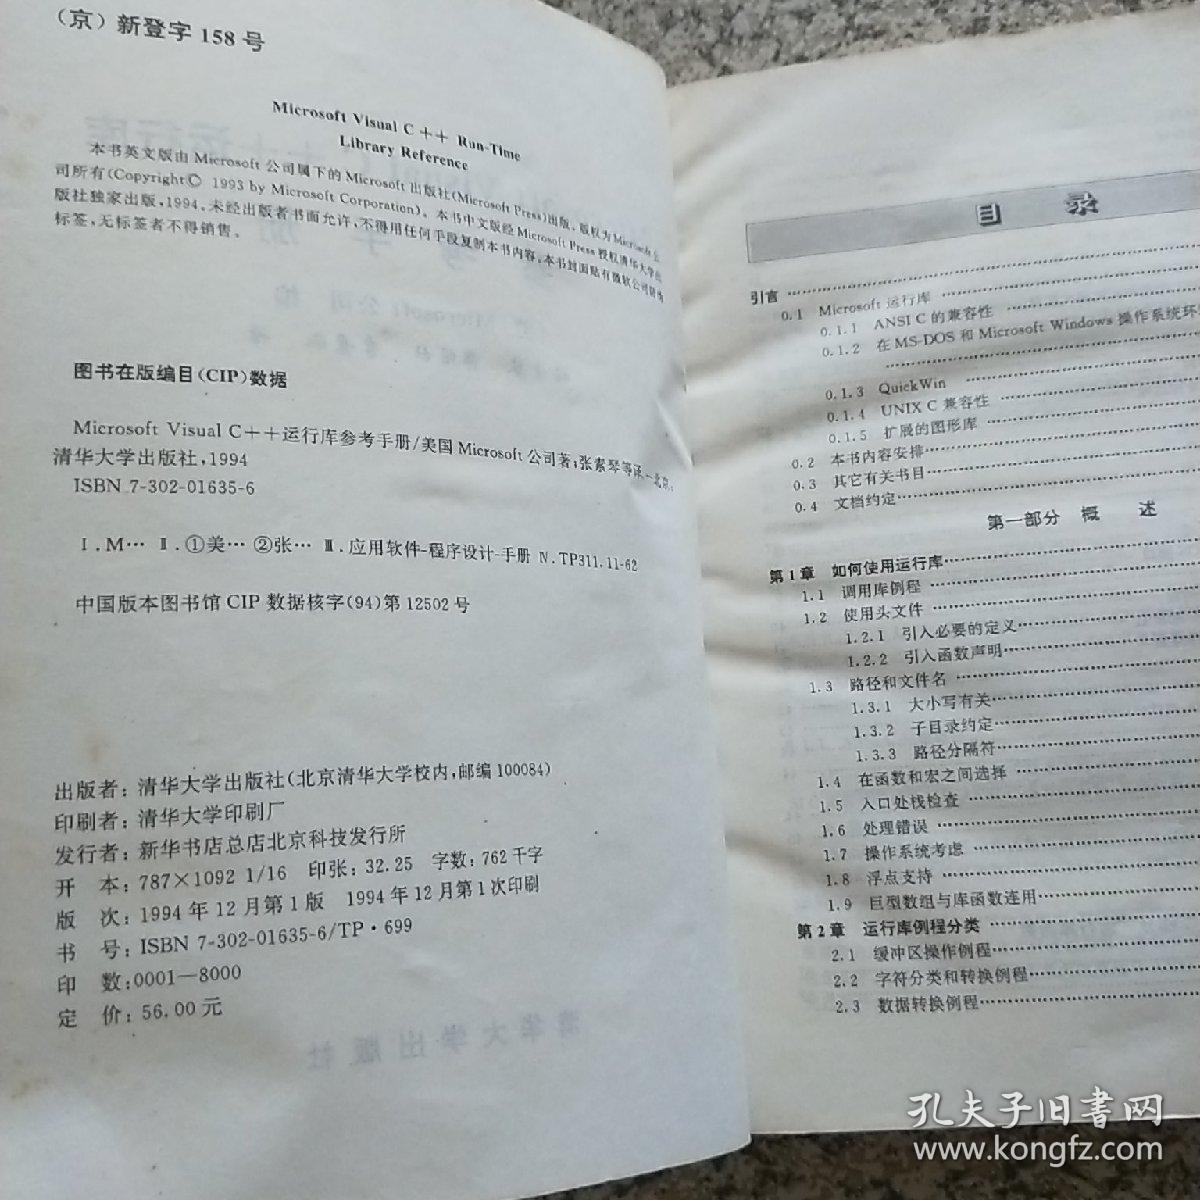 (京)新登字 158 号
Microsoft Visual C++ Run-Time
Library Reference
本书英文版由 Microsoft 公司属下的 Microsoft 出版社(Microsoft Press)出版。版权为 Microsoft 公
司所有(Copyright© 1993 by Microsoft Corporation)。本书中文版经 Microsoft Press 授权清华大学出
版社独家出版,1994。未经出版者书面允许,不得用任何手段复制本书内容。本书封面贴有微软公司防伪
标签,无标签者不得销售。
图书在版编目(CIP)数据
Microsoft Visual C++运行库参考手册/美国 Microsoft 公司著;张素琴等译.—北京:
清华大学出版社,1994
ISBN 7-302-01635-6
Ⅰ.M… Ⅱ.①美… ②张… Ⅲ.应用软件-程序设计-手册 Ⅳ.TP311.11-62
中国版本图书馆 CIP 数据核字(94)第 12502 号
出版者:清华大学出版社(北京清华大学校内,邮编100084)
印刷者:清华大学印刷厂
发行者:新华书店总店北京科技发行所
开 本:787×1092 1/16 印张:32.25 字数:762 千字
版 次:1994 年 12 月第 1 版 1994 年 12 月第 1 次印刷
书 号:ISBN 7-302-01635-6/TP·699
印 数:0001—8000
定 价:56.00 元
目 录
引言
0.1 Microsoft 运行库
0.1.1 ANSI C 的兼容性
0.1.2 在 MS-DOS 和 Microsoft Windows 操作系统环
0.1.3 QuickWin
0.1.4 UNIX C 兼容性
0.1.5 扩展的图形库
0.2 本书内容安排
0.3 其它有关书目
0.4 文档约定
第一部分 概 述
第 1 章 如何使用运行库
1.1 调用库例程
1.2 使用头文件
1.2.1 引入必要的定义
1.2.2 引入函数声明
1.3 路径和文件名
1.3.1 大小写有关
1.3.2 子目录约定
1.3.3 路径分隔符
1.4 在函数和宏之间选择
1.5 入口处栈检查
1.6 处理错误
1.7 操作系统考虑
1.8 浮点支持
1.9 巨型数组与库函数连用
第 2 章 运行库例程分类
2.1 缓冲区操作例程
2.2 字符分类和转换例程
2.3 数据转换例程
孔夫子旧书网
www.kongfz.com